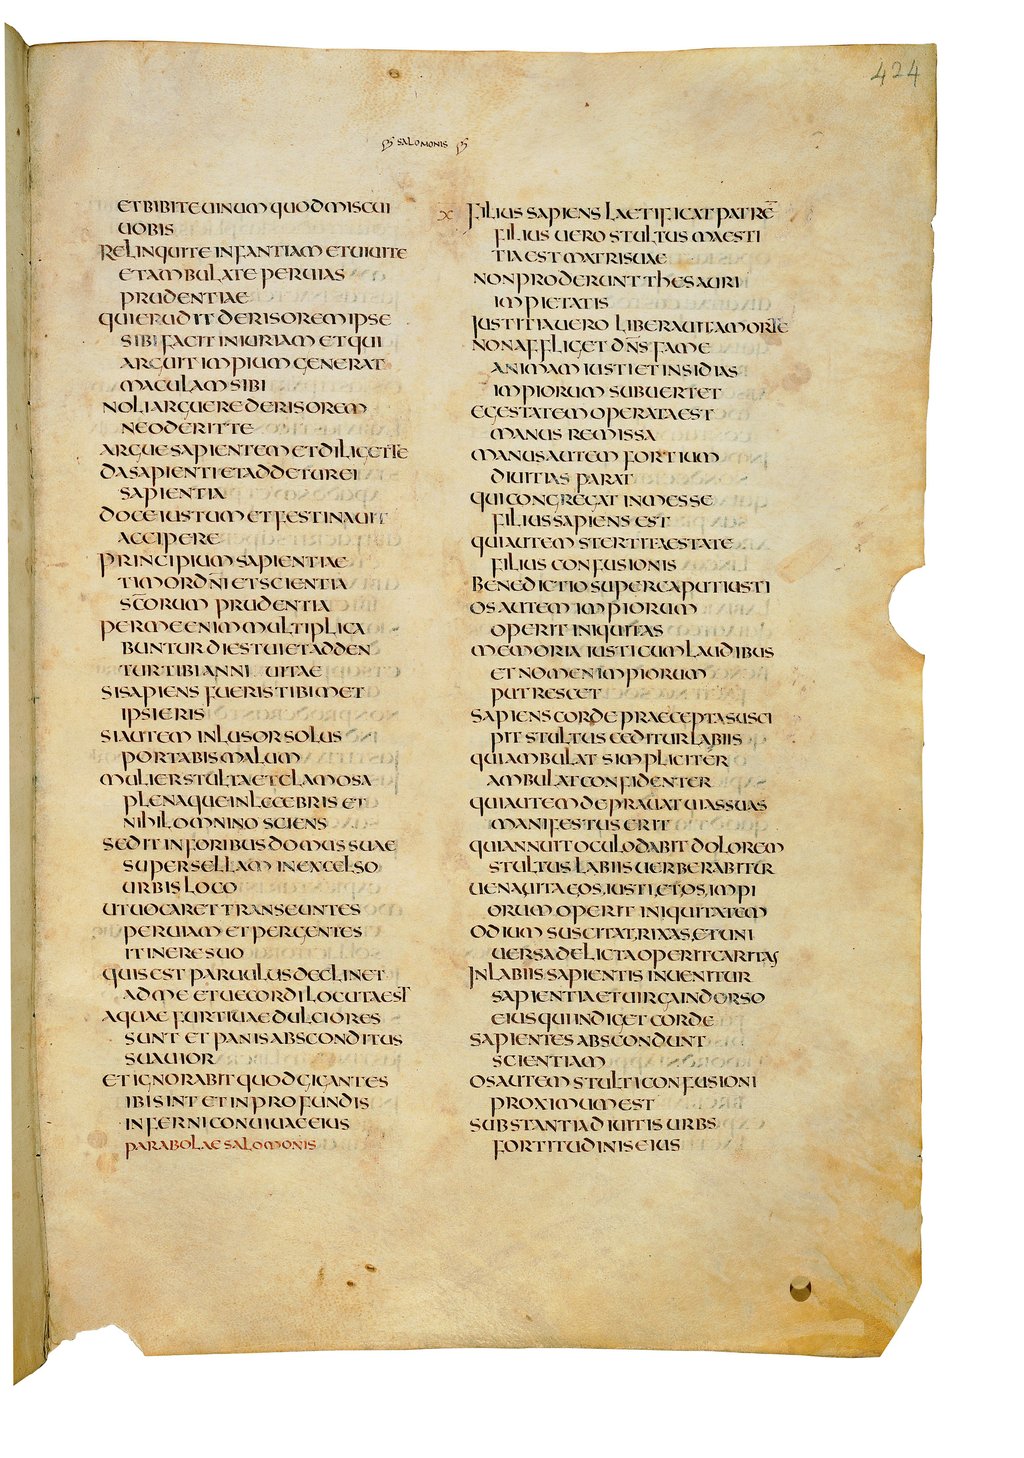 424
SALOMONIS
ET BIBITE UINUM QUOD MISCUI
UOBIS
RELINQUITE INFANTIAM ET UIUITE
ET AMBULATE PER UIAS
PRUDENTIAE
QUI ERUDIT DERISOREM IPSE
SIBI FACIT INIURIAM ET QUI
ARGUIT IMPIUM GENERAT
MACULAM SIBI
NOLI ARGUERE DERISOREM
NE ODERIT TE
ARGUE SAPIENTEM ET DILIGET TE
DA SAPIENTI ET ADDETUR EI
SAPIENTIA
DOCE IUSTUM ET FESTINAUIT
ACCIPERE
PRINCIPIUM SAPIENTIAE
TIMOR DN̄I ET SCIENTIA
SC̄ORUM PRUDENTIA
PER ME ENIM MULTIPLICA
BUNTUR DIES TUI ET ADDEN
TUR TIBI ANNI UITAE
SI SAPIENS FUERIS TIBIMET
IPSI ERIS
SI AUTEM INLUSOR SOLUS
PORTABIS MALUM
MULIER STULTA ET CLAMOSA
PLENAQUE INLECEBRIS ET
NIHIL OMNINO SCIENS
SEDIT IN FORIBUS DOMUS SUAE
SUPER SELLAM IN EXCELSO
URBIS LOCO
UT UOCARET TRANSEUNTES
PER UIAM ET PERGENTES
ITINERE SUO
QUIS EST PARUULUS DECLINET
AD ME ET UECORDI LOCUTA EST
AQUAE FURTIUAE DULCIORES
SUNT ET PANIS ABSCONDITUS
SUAUIOR
ET IGNORABIT QUOD GIGANTES
IBI SINT ET IN PROFUNDIS
INFERNI CONUIUAE EIUS
PARABOLAE SALOMONIS
X FILIUS SAPIENS LAETIFICAT PATRĒ
FILIUS UERO STULTUS MAESTI
TIA EST MATRI SUAE
NON PRODERUNT THESAURI
IMPIETATIS
IUSTITIA UERO LIBERAUIT A MORTE
NON AFFLIGET DN̄S FAME
ANIMAM IUSTI ET INSIDIAS
IMPIORUM SUBUERTET
EGESTATEM OPERATA EST
MANUS REMISSA
MANUS AUTEM FORTIUM
DIUITIAS PARAT
QUI CONGREGAT IN MESSE
FILIUS SAPIENS EST
QUI AUTEM STERTIT AESTATE
FILIUS CONFUSIONIS
BENEDICTIO SUPER CAPUT IUSTI
OS AUTEM IMPIORUM
OPERIT INIQUITAS
MEMORIA IUSTI CUM LAUDIBUS
ET NOMEN IMPIORUM
PUTRESCET
SAPIENS CORDE PRAECEPTA SUSCI
PIT STULTUS CEDITUR LABIIS
QUI AMBULAT SIMPLICITER
AMBULAT CONFIDENTER
QUI AUTEM DEPRAUAT UIAS SUAS
MANIFESTUS ERIT
QUI ANNUIT OCULO DABIT DOLOREM
STULTUS LABIIS UERBERABITUR
UENA UITAE OS IUSTI ET OS IMPI
ORUM OPERIT INIQUITATEM
ODIUM SUSCITAT RIXAS ET UNI
UERSA DELICTA OPERIT CARITAS
IN LABIIS SAPIENTIS INUENITUR
SAPIENTIA ET UIRGA IN DORSO
EIUS QUI INDIGET CORDE
SAPIENTES ABSCONDUNT
SCIENTIAM
OS AUTEM STULTI CONFUSIONI
PROXIMUM EST
SUBSTANTIA DIUITIS URBS
FORTITUDINIS EIUS